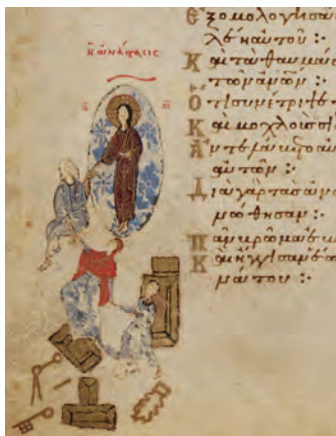 ἡ ἀνάστασις
Ἐξομολογησα
λέη αὐτοῦ :·
Καὶ τὰ θαυμάσι
τῶν ἀνῶν :·
Ὅτι συνέτριψε
Καὶ μοχλοὺς σι
Ἀντελάβετο αὐ
αὐτῶν :·
Διὰ γὰρ τὰς ἀνο
νώθησαν :·
Πᾶν βρῶμα
Καὶ ἤγγισαν ἕω
νάτου :·